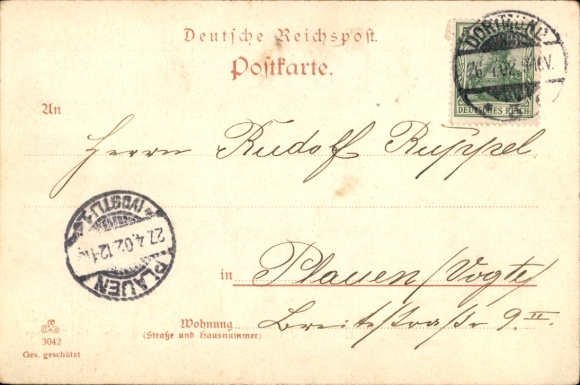 Deutsche Reichspost.
Postkarte.
DORTMUND
26.4.02.
DEUTSCHES REICH
An
Herrn Rudolf Ruppel
PLAUEN
(VOGTL.) 1
27.4.02.
in Plauen /Vogtl/
Wohnung Breitestraße 9.II.
(Straße und Hausnummer)
3042
Ges. geschützt